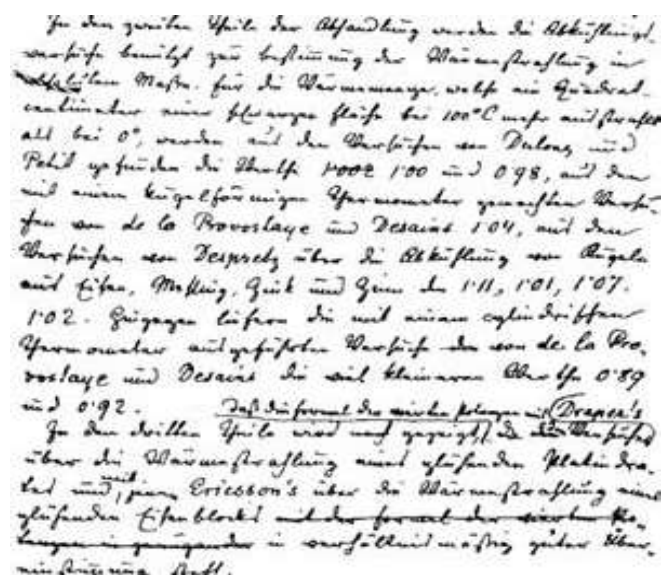 In dem zweiten Theile der Abhandlung werden die Abkühlungs-
versuche benützt zur Bestimmung der Wärmestrahlung in
absolutem Maße. Für die Wärmemenge, welche ein Quadrat-
centimeter einer schwarzen Fläche bei 100°C mehr ausstrahlt
als bei 0°, werden aus den Versuchen von Dulong und
Petit gefunden die Werthe 1·002 1·00 und 0·98, aus den
mit einem kugelförmigen Thermometer gemachten Versu-
chen von de la Provostaye und Desains 1·04, aus den
Versuchen von Despretz über die Abkühlung von Kugeln
aus Eisen, Messing, Zink und Zinn die 1·11, 1·01, 1·07.
1·02. Hingegen liefern die mit einem cylindrischen
Thermometer ausgeführten Versuche von de la Pro-
vostaye und Desains die viel kleineren Werthe 0·89
und 0·92. Daß die Formel der vierten Potenzen mit Draper's
In dem dritten Theile wird noch gezeigt, Versuchen
über die Wärmestrahlung eines glühenden Platindra-
tes und mit jenen Ericsson's über die Wärmestrahlung eines
glühenden Eisenblocks mit der Formel der vierten Po-
tenzen in genügender in verhältnismäßig guter Über-
einstimmung steht.